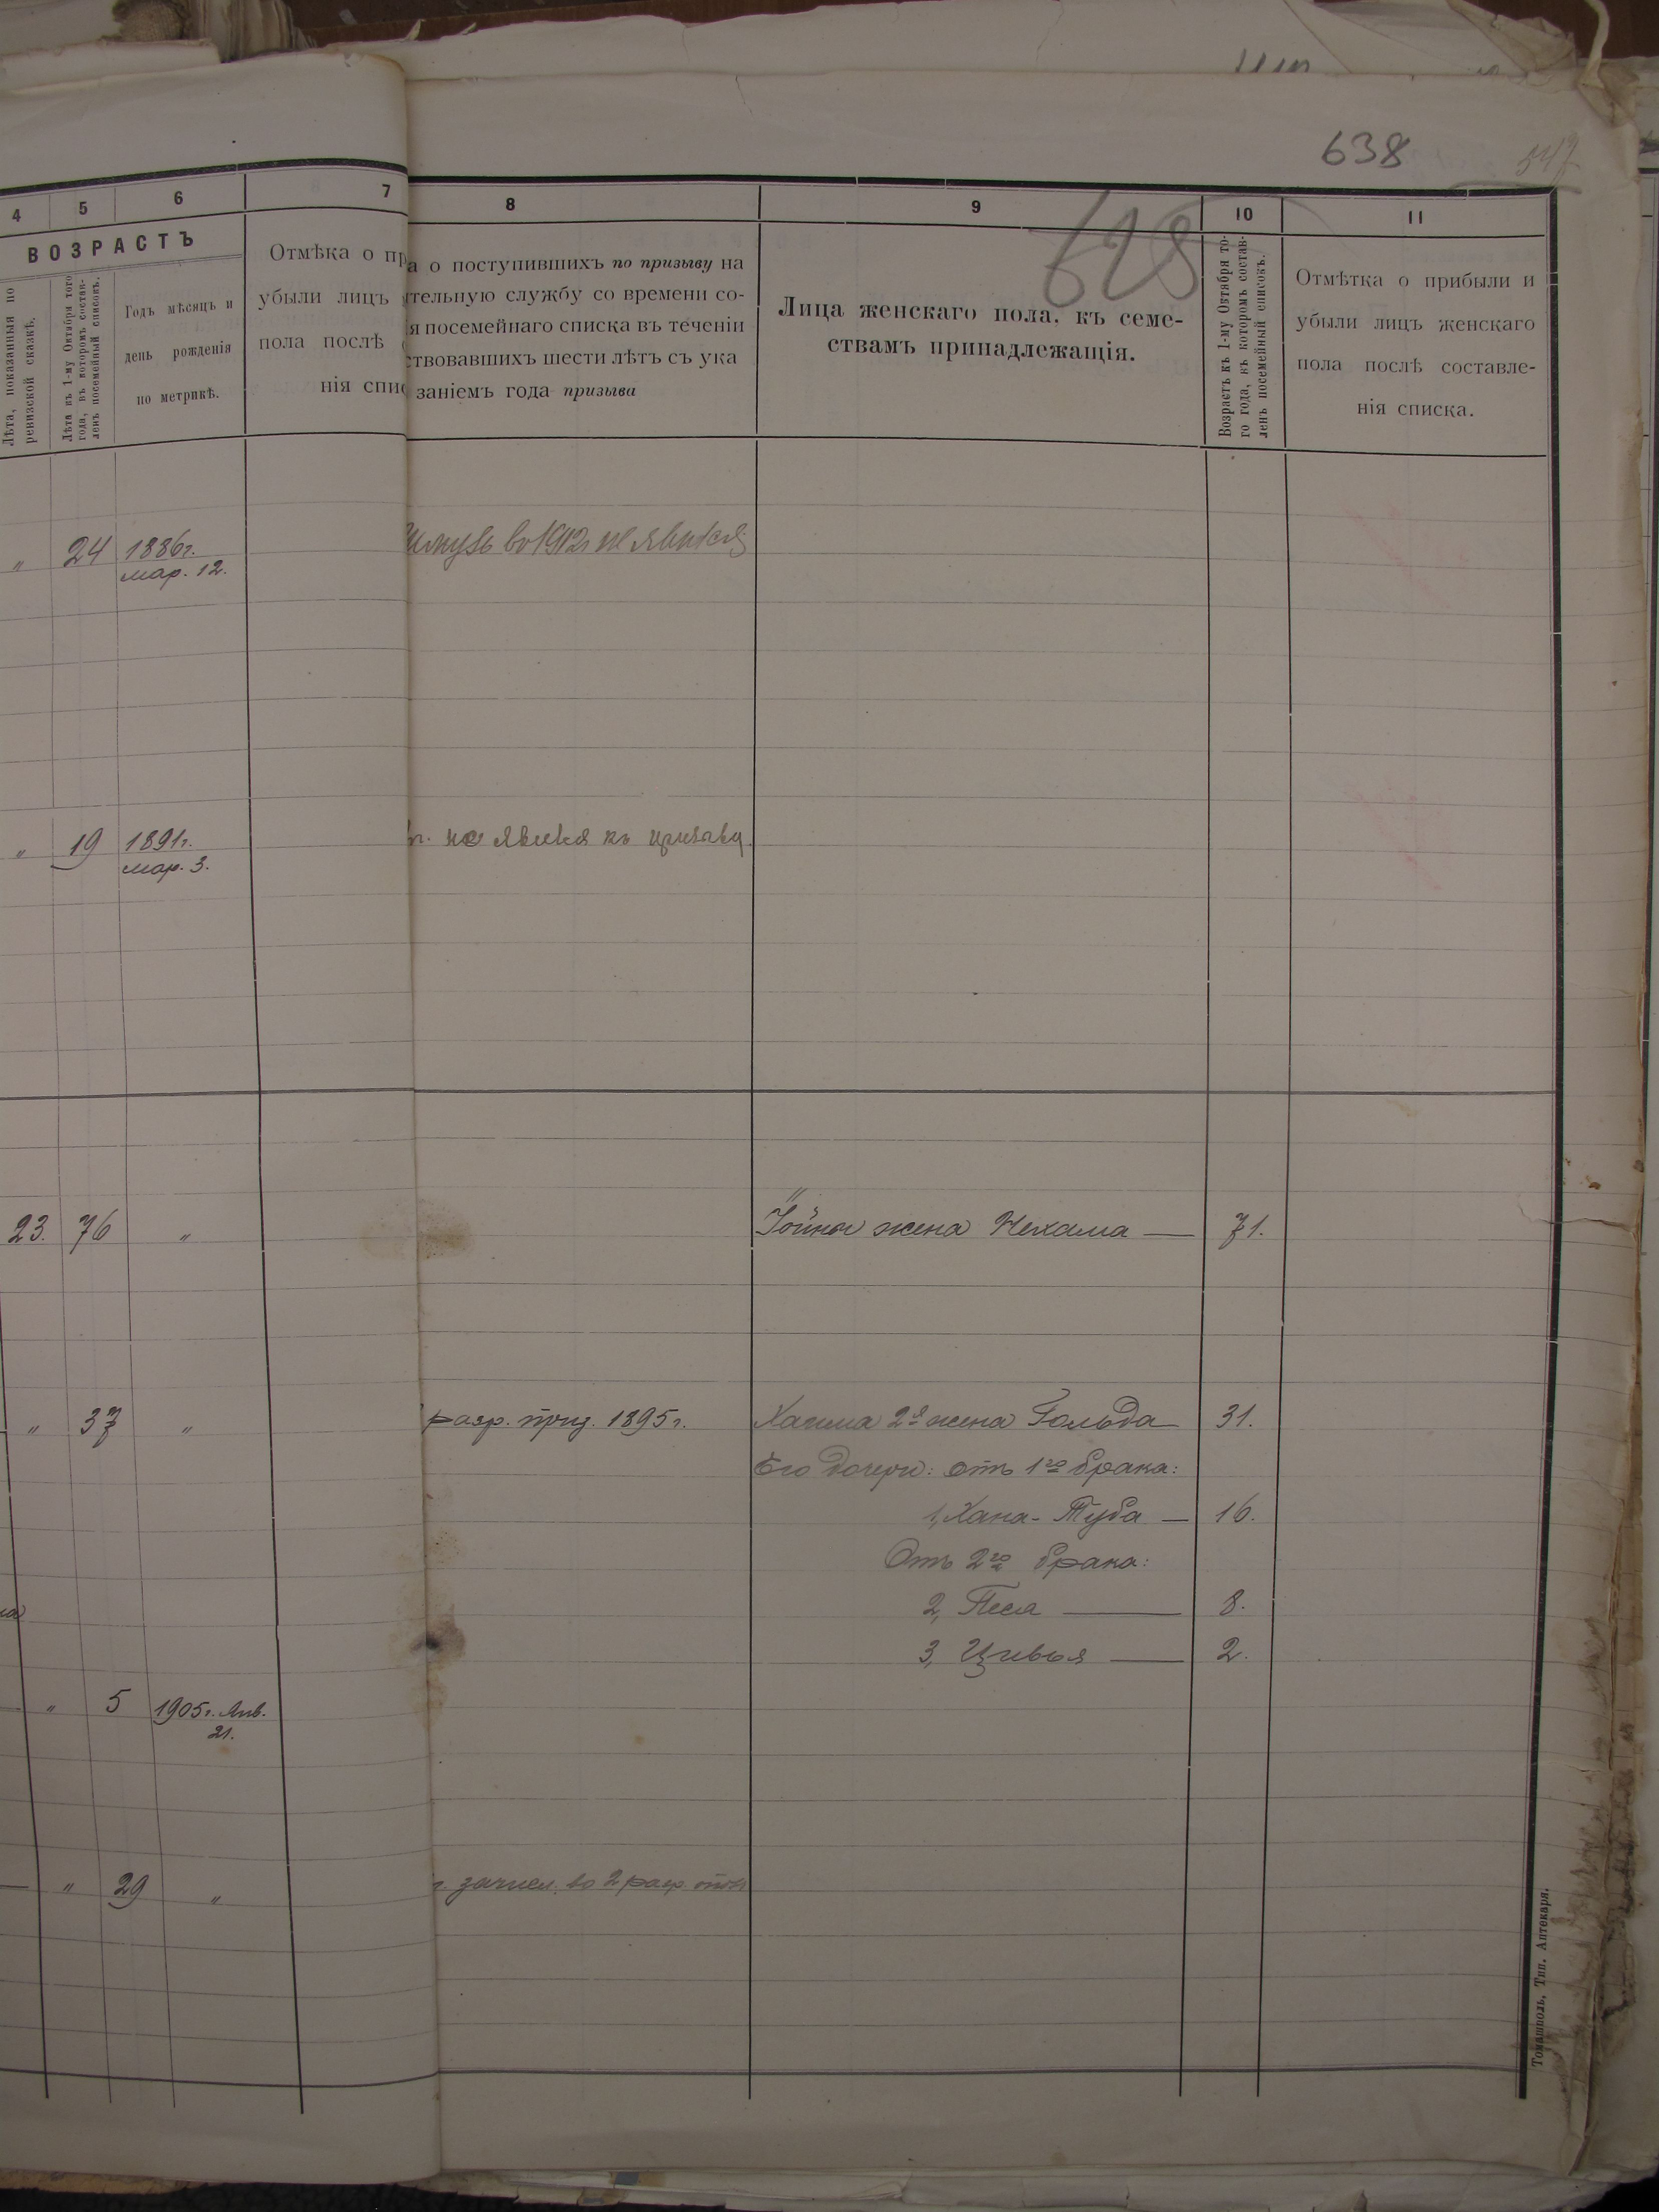 638
547
628
4 5 6 7 8 9 10 11
ВОЗРАСТЪ
Лѣта, показанныя по
ревизской сказкѣ.
Лѣта къ 1-му Октября того
года, въ которомъ состав-
ленъ посемейный списокъ.
Годъ мѣсяцъ и
день рожденія
по метрикѣ.
Отмѣка о пр
убыли лицъ
пола послѣ
нія спис
а о поступившихъ по призыву на
тельную службу со времени со-
я посемейнаго списка въ теченіи
ствовавшихъ шести лѣтъ съ ука
заніемъ года призыва
Лица женскаго пола, къ семе-
ствамъ принадлежащія.
Возрастъ къ 1-му Октября то-
го года, къ которомъ состав-
ленъ посемейный списокъ.
Отмѣтка о прибыли и
убыли лицъ женскаго
пола послѣ составле-
нія списка.
„ 24 1886г. во 1912г не явился
мар. 12.
„ 19 1891г. г. не явился къ призыву.
мар. 3.
23. 76 „ Іойны жена Нехама — 71.
„ 37 „ разр. приз. 1895г. Хаима 2я жена Гольда 31.
Его дочери: отъ 1го брака:
1, Хана-Туба — 16.
Отъ 2го брака:
2, Песя — 8.
3, Цивья — 2.
„ 5 1905г. Янв.
21.
— „ 29 „ г. зачисл. во 2 разр. опол
Томашполь, Тип. Аптекаря.